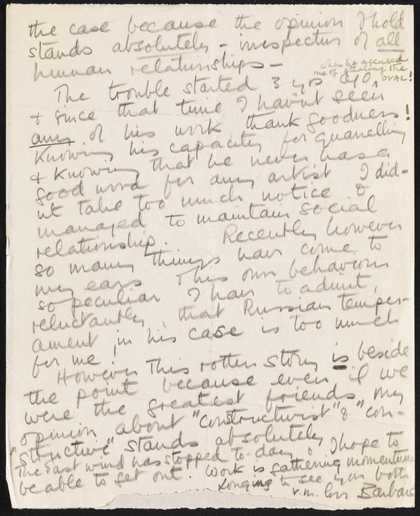 the case because the opinion I hold
stands absolutely – irrespective of all
human relationships –
The trouble started 3 yrs ago,
when he accused
me of stealing the
OVAL!
& since that time I havn't seen
any of his work thank goodness!
Knowing his capacity for quarelling
& knowing that he never has a
good word for any artist I did-
n't take too much notice &
managed to maintain social
relationship. Recently however
so many things have come to
my ears & his own behaviour
so peculiar I have to admit,
reluctantly, that Russian temper-
ament in his case is too much
for me!
However this rotten story is beside
the point because even if we
were the greatest friends, my
opinion about "constructivist" & "con-
structive" stands absolutely.
The East wind has stopped to-day & I hope to
be able to get out. Work is gathering momentum
Longing to see you both
v. m. love Barbara